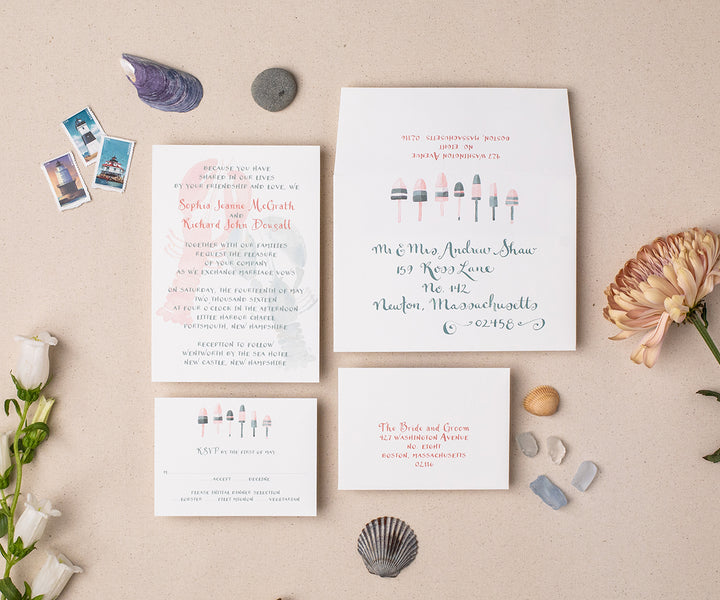 BECAUSE YOU HAVE
SHARED IN OUR LIVES
BY YOUR FRIENDSHIP AND LOVE, WE
Sophia Jeanne McGrath
AND
Richard John Dowsall
TOGETHER WITH OUR FAMILIES
REQUEST THE PLEASURE
OF YOUR COMPANY
AS WE EXCHANGE MARRIAGE VOWS
ON SATURDAY, THE FOURTEENTH OF MAY
TWO THOUSAND SIXTEEN
AT FOUR O'CLOCK IN THE AFTERNOON
LITTLE HARBOR CHAPEL
PORTSMOUTH, NEW HAMPSHIRE
RECEPTION TO FOLLOW
WENTWORTH BY THE SEA HOTEL
NEW CASTLE, NEW HAMPSHIRE
427 WASHINGTON AVENUE
NO. EIGHT
BOSTON, MASSACHUSETTS 02116
Mr & Mrs Andrew Shaw
159 Ross Lane
No. 142
Newton, Massachusetts
02458
RSVP BY THE FIRST OF MAY
M
ACCEPT DECLINE
PLEASE INITIAL DINNER SELECTION
LOBSTER FILET MIGNON VEGETARIAN
The Bride and Groom
427 WASHINGTON AVENUE
NO. EIGHT
BOSTON, MASSACHUSETTS
02116